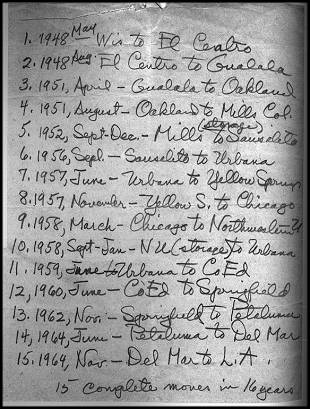 1. 1948 May Wis to El Centro
2. 1948 Aug. El Centro to Gualala
3. 1951, April - Gualala to Oakland
4. 1951, August - Oakland to Mills Col.
5. 1952, Sept-Dec. - Mills (storage) to Sausalito
6. 1956, Sept. - Sausalito to Urbana
7. 1957, June - Urbana to Yellow Springs
8. 1957, November - Yellow S. to Chicago
9. 1958, March - Chicago to Northwestern U
10. 1958, Sept-Jan - NU (storage) to Urbana
11. 1959, June to Urbana to CoEd
12, 1960, June - CoEd to Springfield
13. 1962, Nov. - Springfield to Petaluma
14, 1964, June - Petaluma to Del Mar
15. 1964, Nov. - Del Mar to L.A.
15 complete moves in 16 years